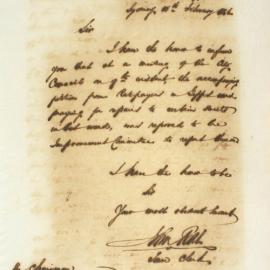 Sydney 11th February 1862
Sir
I have the honor to inform
you that at a meeting of the City
Council on 9th instant, the accompanying
petition from Ratepayers in
praying for repairs to certain streets
in that ward, was referred to the
Improvement Committee to report thereon
I have the honor to be
Sir
Your most obedient servant
Town Clerk
Chairman